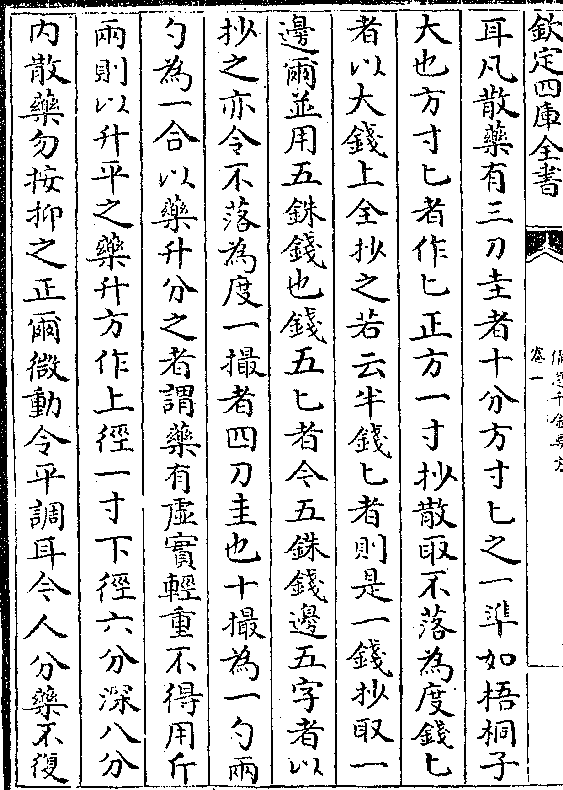 欽定四庫全書
備急千金要方
卷一
耳凡散藥有三刀圭者十分方寸匕之一準如梧桐子
大也方寸匕者作匕正方一寸抄散取不落為度錢匕
者以大錢上全抄之若云半錢匕者則是一錢抄取一
邊爾並用五銖錢也錢五匕者今五銖錢邊五字者以
抄之亦令不落為度一撮者四刀圭也十撮為一勺兩
勺為一合以藥升分之者謂藥有虛實輕重不得用斤
兩則以升平之藥升方作上徑一寸下徑六分深八分
内散藥勿按抑之正爾微動令平調耳今人分藥不復